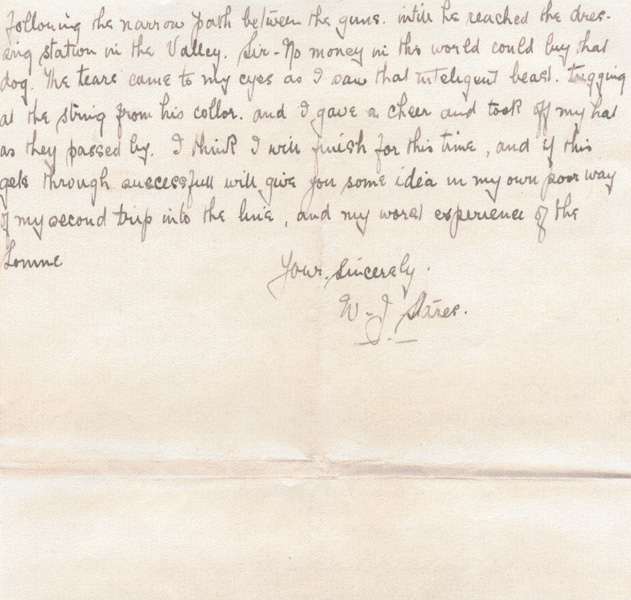 following the narrow path between the guns. intill he reached the dres-
sing station in the Valley. Sir - No money in this world could buy that
dog. The tears came to my eyes as I saw that inteligent beast. tugging
at the string from his collor. and I gave a cheer and took off my hat
as they passed by. I think I will finish for this time, and if this
gets through successfull will give you some idea in my own poor way
of my second trip into the line, and my worst experience of the
Somme
Yours Sincerely.
W. J.